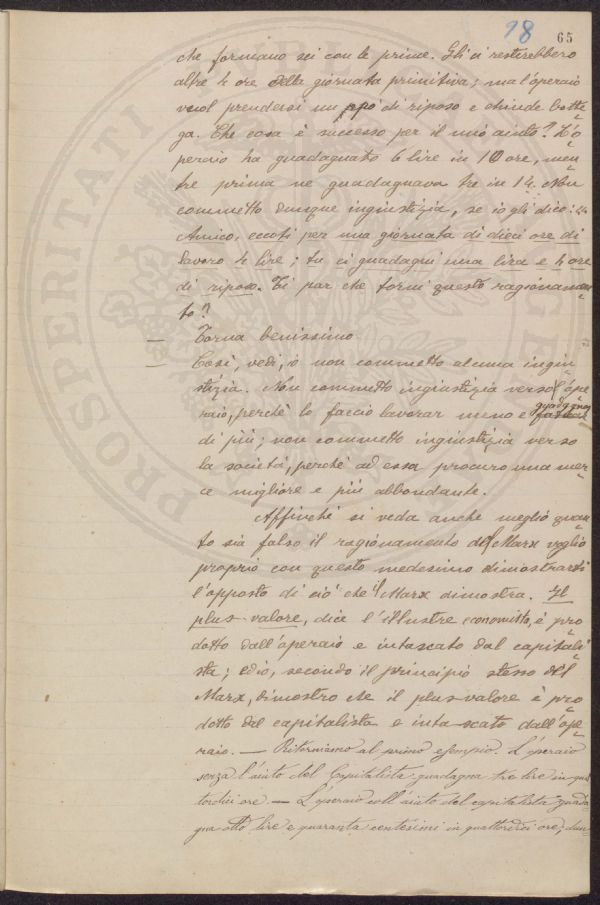 98 65
che formano sei con le prime. Gli si resterebbero
altre 4 ore della giornata primitiva; ma l'operaio
vuol prendersi un pò di riposo e chiude botte
ga. Che cosa è successo per il mio aiuto? L'o
peraio ha guadagnato 6 lire in 10 ore, men
tre prima ne guadagnava tre in 14. Non
commetto dunque ingiustizia, se io gli dico:
Amico, eccoti per una giornata di dieci ore di
lavoro 4 lire; tu ci guadagni una lira e 4 ore
di riposo. Ti par che torni questo ragionamen
to?
— Torna benissimo
— Così, vedi, io non commetto alcuna ingiu
stizia. Non commetto ingiustizia verso l'ope
raio, perchè lo faccio lavorar meno e guadagnar
di più; non commetto ingiustizia verso
la società, perchè ad essa procuro una mer
ce migliore e più abbondante.
Affinchè si veda anche meglio quan
to sia falso il ragionamento del Marx voglio
proprio con questo medesimo dimostrarti
l'opposto di ciò che il Marx dimostra. Il
plus-valore, dice l'illustre economista, è pro
dotto dall'operaio e intascato dal capitali
sta; ed io, secondo il principio stesso del
Marx, dimostro che il plus-valore è pro
dotto dal capitalista e intascato dall'ope
raio. — Ritorniamo al primo esempio. L'operaio
senza l'aiuto del Capitalista guadagna tre lire in quat
tordici ore. — L'operaio coll'aiuto del capitalista guada
gna otto lire e quaranta centesimi in quattordici ore; dun
PROSPERITATI